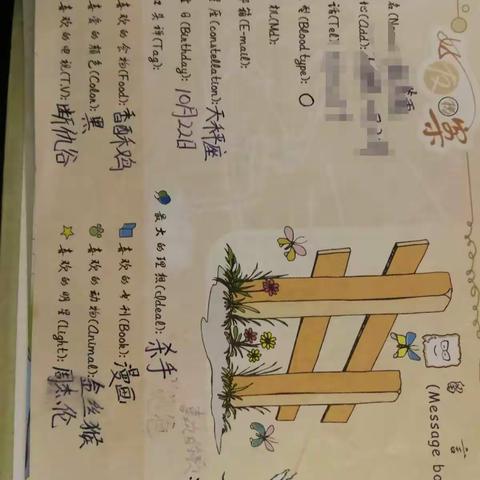 名(Name):
址(Add):
话(Tel):
型(Blood type): O
机(Md):
邮箱(E-mail):
座(constellation): 天秤座
日(Birthday): 10月22日
口头禅(Tag):
喜欢的食物(Food): 香酥鸡
喜爱的颜色(Color): 黑
喜欢的电视(TV): 断仇谷
最大的理想(Ideal): 杀手
喜欢的书刊(Book): 漫画
喜欢的动物(Animal): 金丝猴
喜欢的明星(Light): 周杰伦
留言
(Message bo